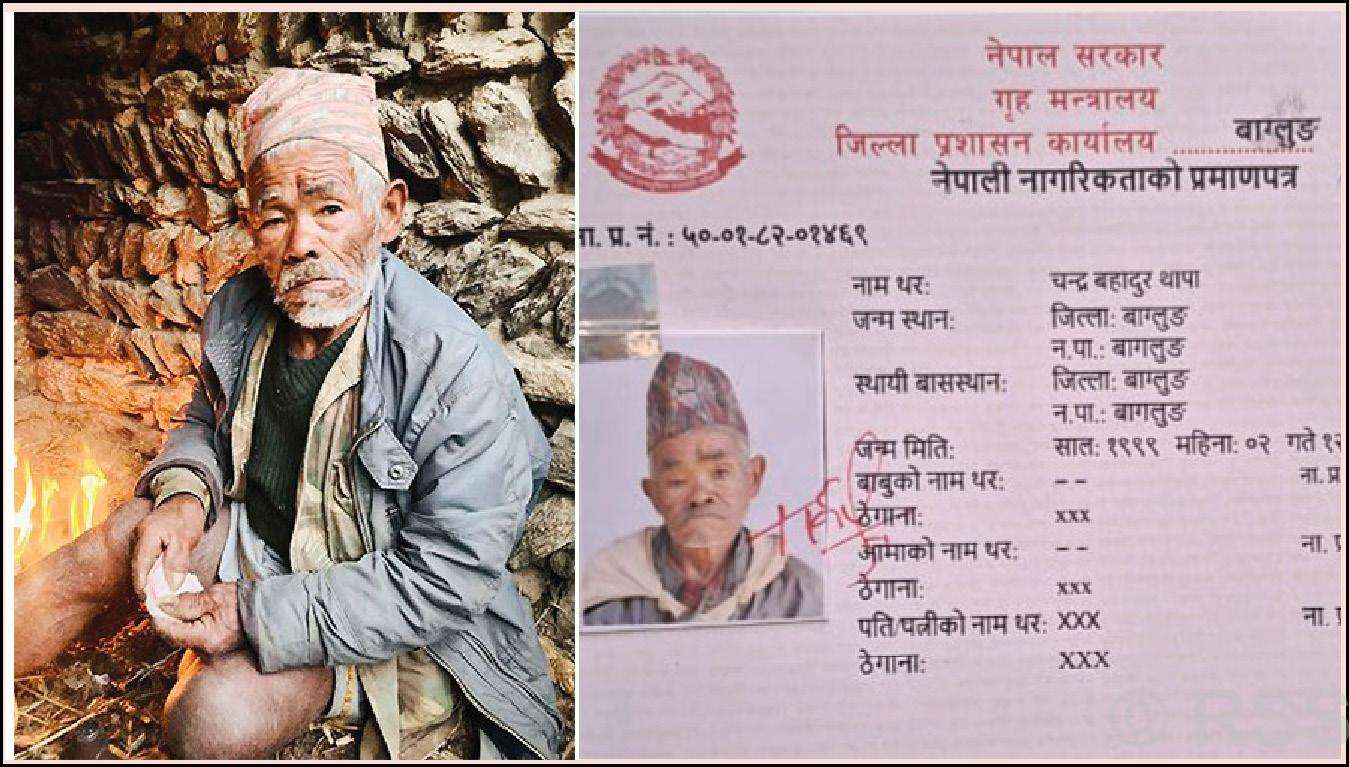 नेपाल सरकार
गृह मन्त्रालय
जिल्ला प्रशासन कार्यालय .................. बाग्लुङ
नेपाली नागरिकताको प्रमाणपत्र
ना. प्र. नं. : ५०-०१-८२-०१४६९
नाम थर: चन्द्र बहादुर थापा
जन्म स्थान: जिल्ला: बाग्लुङ
न.पा.: बागलुङ
स्थायी बासस्थान: जिल्ला: बाग्लुङ
न.पा.: बागलुङ
जन्म मिति: साल: १९९९ महिना: ०२ गते १२
बाबुको नाम थर: -- ना. प्र
ठेगाना: xxx
आमाको नाम थर: -- ना. प्र
ठेगाना: xxx
पति/पत्नीको नाम थर: XXX ना. प्र
ठेगाना: XXX
RSS